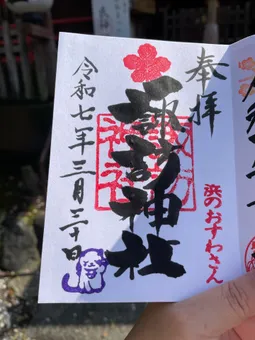 奉拝
諏訪神社
浜のおすわさん
令和七年三月三十日